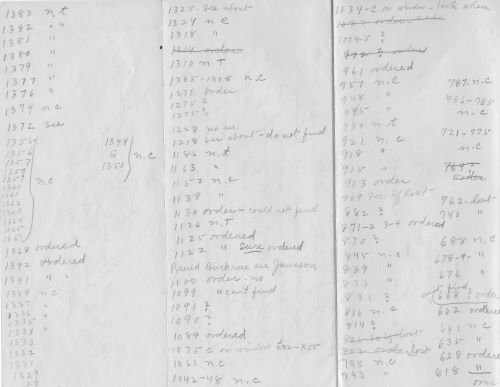 1383 n.t
1382 " "
1381 "
1380 "
1379 "
1377 "
1376 "
1374 n.c
1372 see
1358
1357
1360
1361
1362
1363
1364
1365
1367
n.c
1344
G
1350
n.c
1368 ordered
1342 ordered
1341 " "
1339 n.c
1337
1336 "
1335 "
1334 "
1333
1332
1331
1329
1325- See about
1324 n c
1318 "
1314 order
1310 n T
1305-1308 n.c
1277 order
1275 ?
1273
1228 no au.
1218 see about - do not find
1186 n.t
1163 "
1152 n.c
1139 "
1130 order - could not find
1126 n.T
1125 ordered
1122 " Sure ordered
Pread Buckrose see Janeson
1100 order - no
1099 " can't find
1091 ?
1090 ?
1089 ordered
1075 C or
1061 n.c
1042-48 n.c
1034-C. on window - books where
1004-5 ?
972 ? ordered
961 ordered
957 n.c
948 "
945 "
939 n.t
921 n.c
918 "
915 "
913 order
909 see if lost
882 ?
871-2 3-4 ordered
870 ?
845 n.c
839 "
833 "
831 ?
816 n.c
814 ?
822 order lost
798 n.c
793 "
787. n.c
786-785
n.c
721-775
n.c
order
762. lost
740 "
688 n.c
678-9- "
676 "
can't find
668 ? order
662 ordered
641 n.c
635 "
628 ordered
618 "